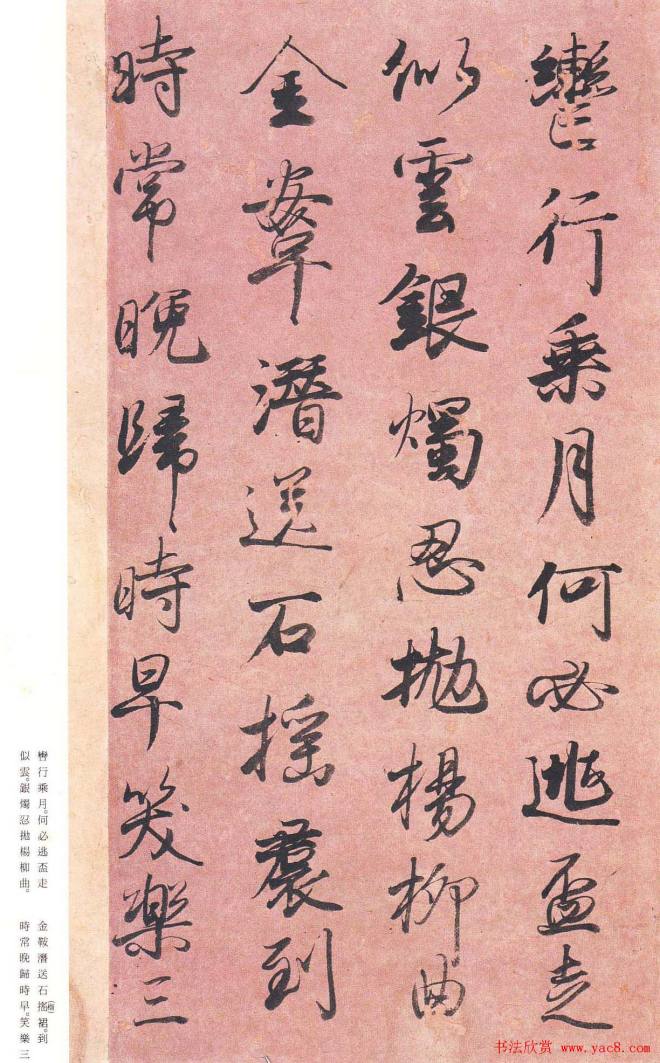 轡行乘月何必逃盃走
似雲銀燭忍拋楊柳曲
金鞍潛送石搖裠到
時常晚歸時早笑樂三
轡行乘月。何必逃盃走
似雲。銀燭忍拋楊柳曲。
金鞍潛送石搖(榴)裙。到
時常晚歸時早。笑樂三
书法欣赏 www.yac8.com